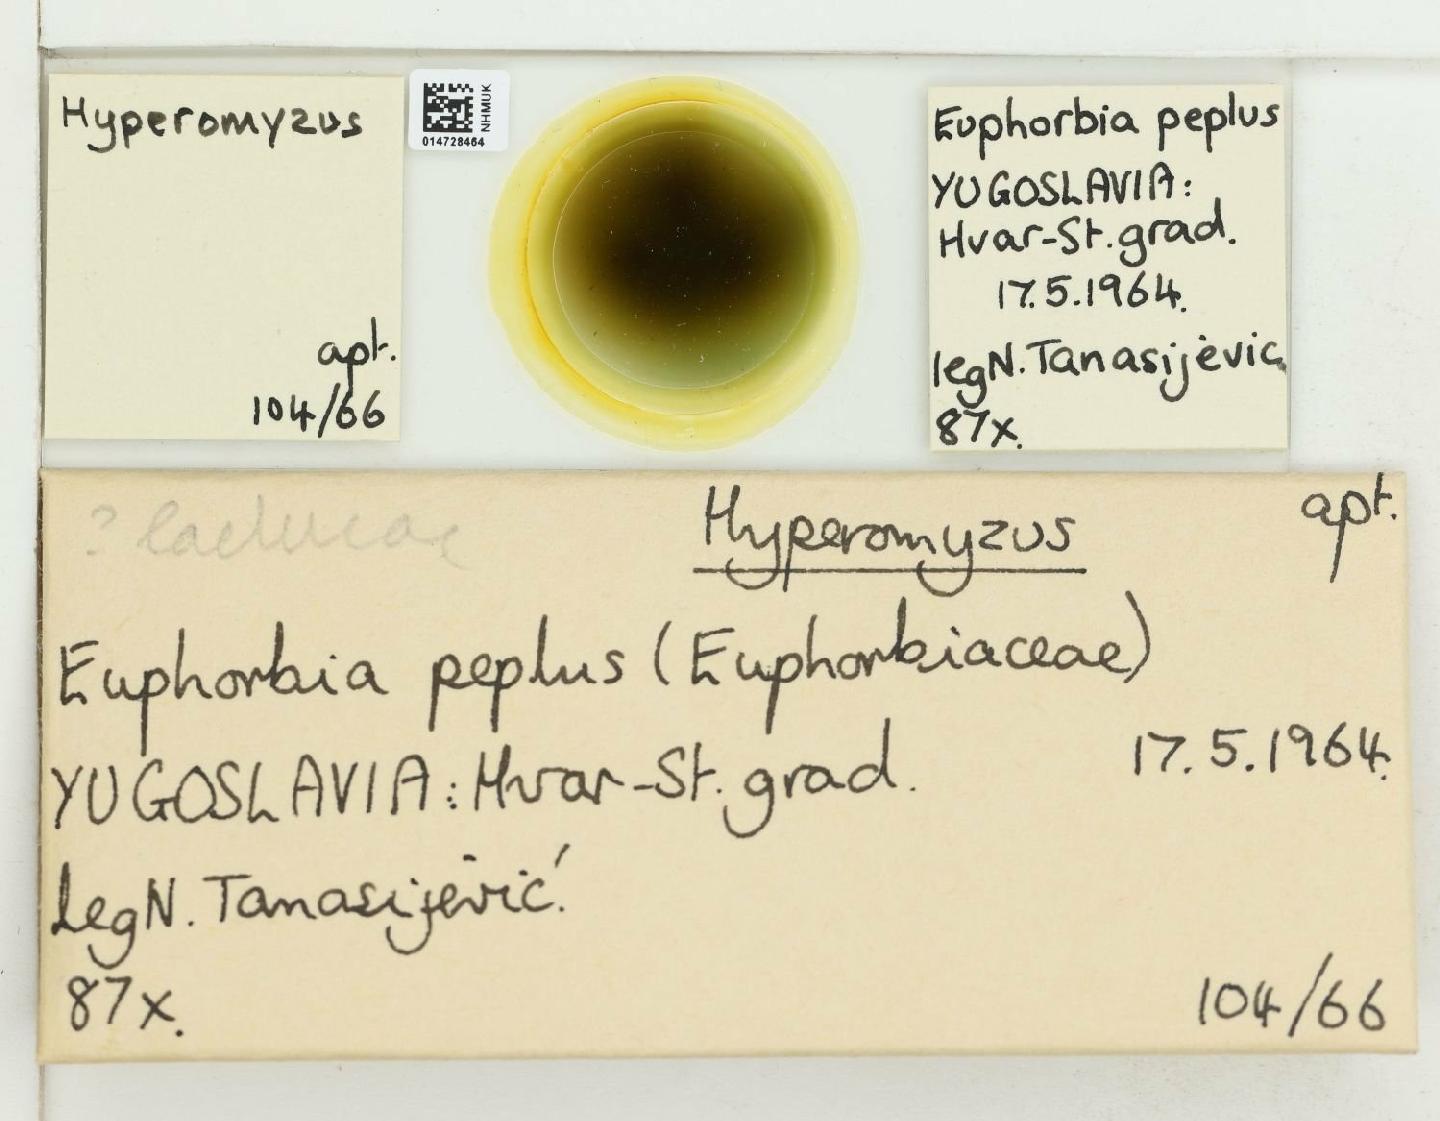 Hyperomyzus
apt.
104/66
NHMUK
014728464
Euphorbia peplus
YUGOSLAVIA:
Hvar-St.grad.
17.5.1964.
leg N. Tanasijevic
87x.
? lactucae
Hyperomyzus
apt.
Euphorbia peplus (Euphorbiaceae)
YUGOSLAVIA: Hvar-St.grad.
17.5.1964.
leg N. Tanasijević.
87x.
104/66